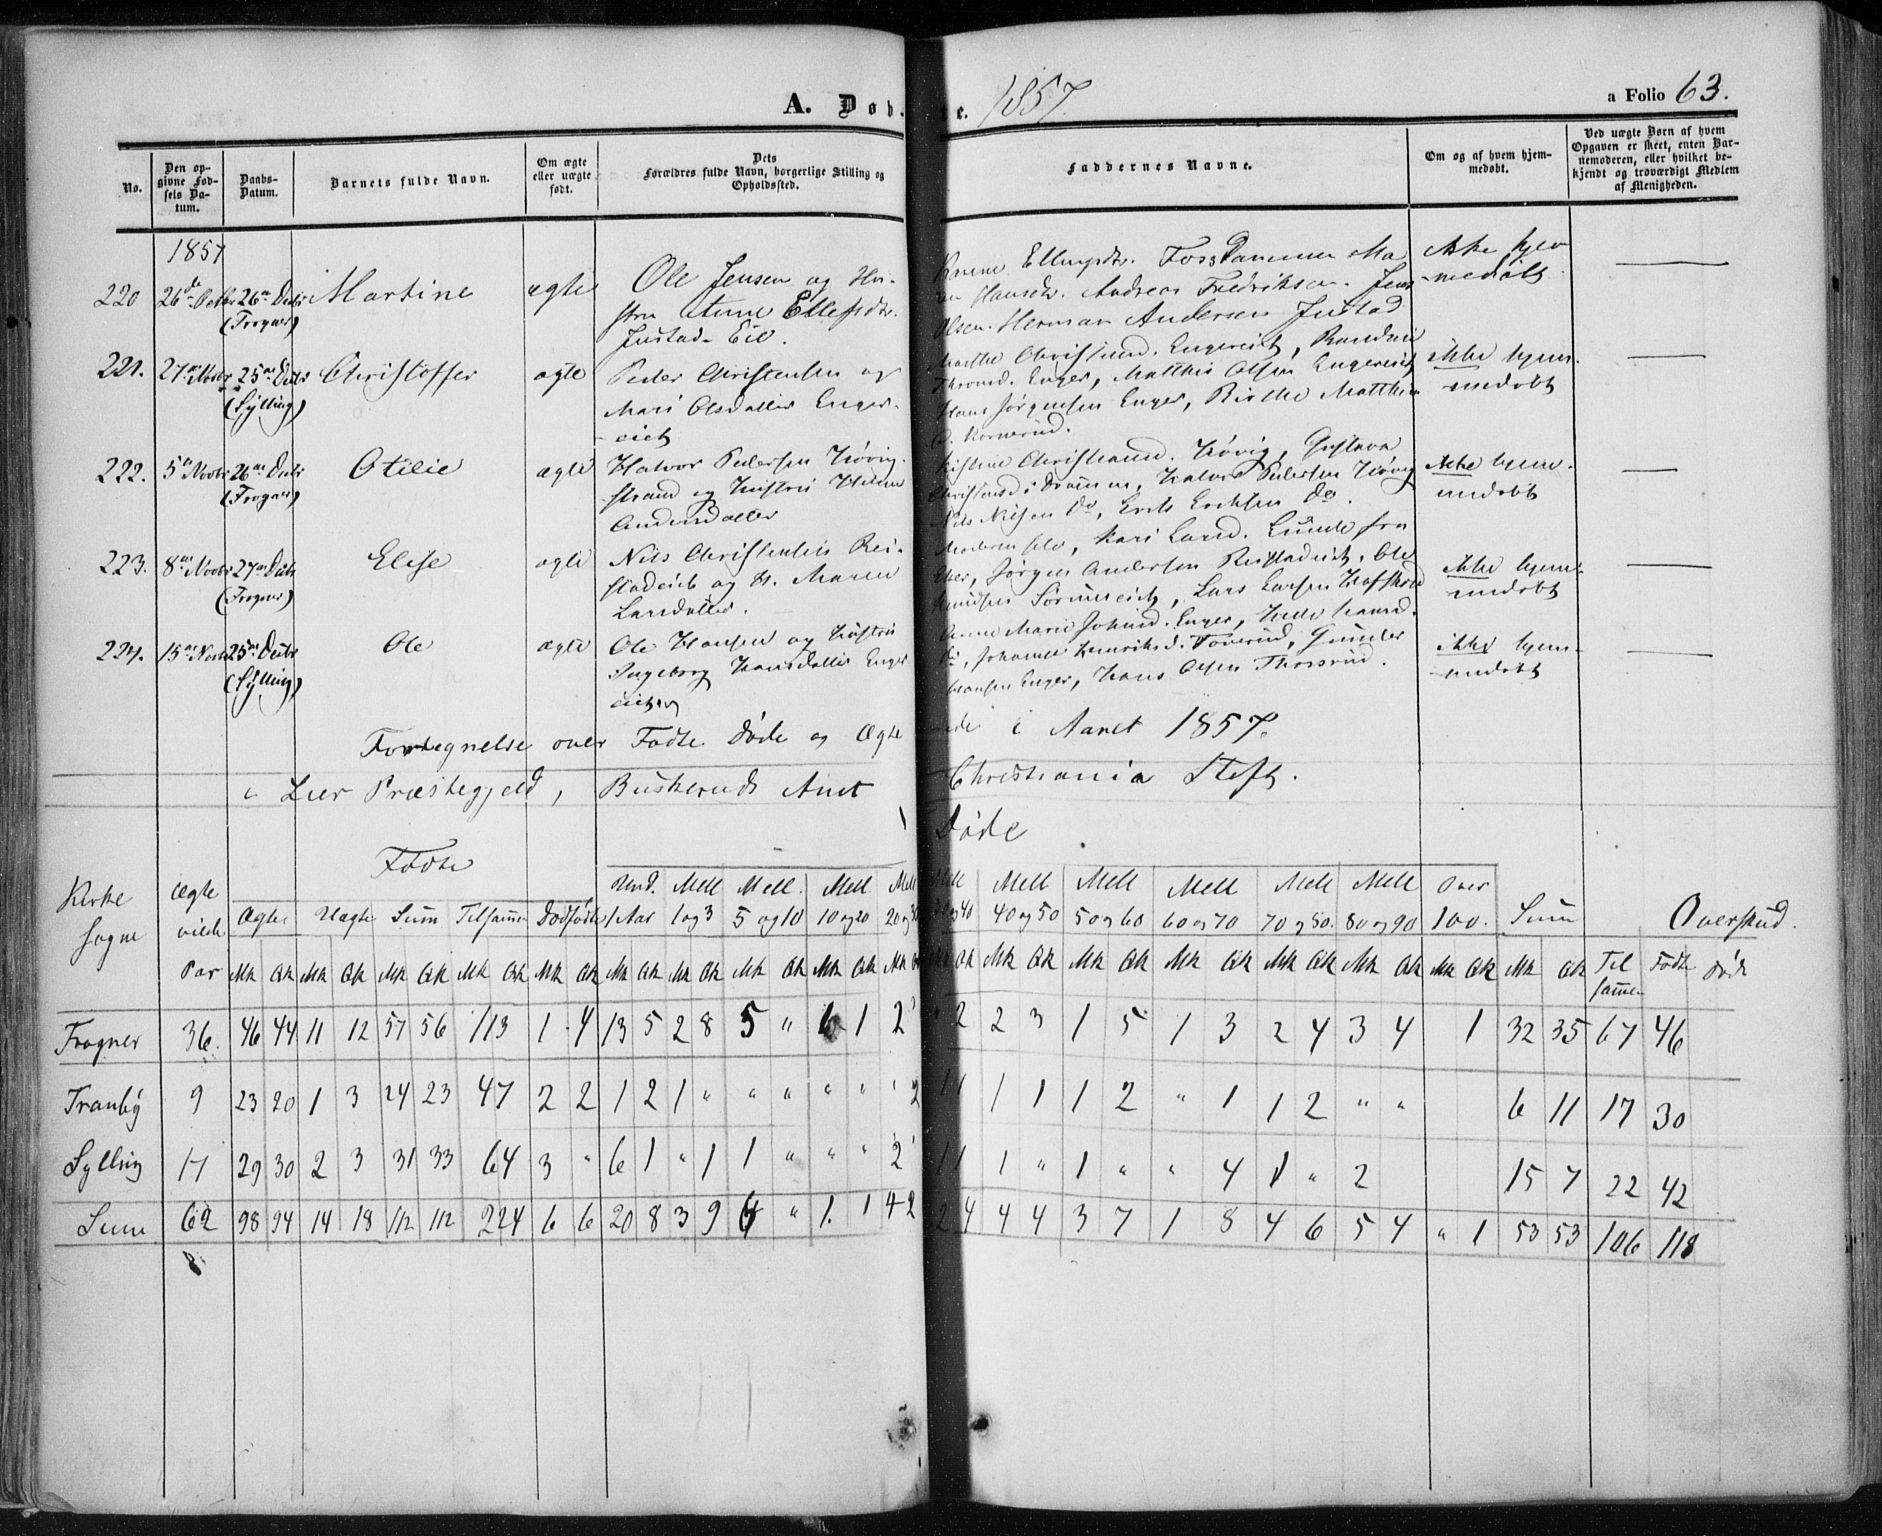 A. Døb te. 1857. a Folio 63.
No.
Den op-
givne Fød-
sels Da-
tum.
Daabs-
Datum.
Barnets fulde Navn.
Om ægte
eller uægte
født.
Dets
Forældres fulde Navn, borgerlige Stilling og
Opholdssted.
Faddernes Navne.
Om og af hvem hjem-
medøbt.
Ved uægte Børn af hvem
Opgaven er skeet, enten Bar-
nemoderen, eller hvilket be-
kjendt og troværdigt Medlem
af Menigheden.
1857
220 26de Octbr 26de Decbr
(Frogner)
Martine
ægte
Ole Jensen og Hu-
stru Anne Ellefsdtr.
Justad- Eie.
Hansdtr. Andreas Fredriksen. Jens
Olsen. Herman Andersen Justad
ikke hjem
-medøbt
221. 27de Novbr 25de Decbr
(Sylling)
Christoffer
ægte
Peder Christensen og
Mari Olsdatter Enger-
eiet
Marthe Christensd. Engereiet,
Thronsd. Enger, Matthis Olsen Engereiet
Hans Jørgensen Enger, Birthe Matthis
d. Kornerud.
ikke hjem-
medøbt
222. 5te Novbr 26de Decbr
(Frogner)
Otilie
ægte
Halvor Pedersen Gilhus-
strand og Hustru
Andersdatter
Christensd. i Drammen, Halvor Pedersen
Nils Nilsen Do, Erik Eriksen Do.
ikke hjem-
medøbt
223. 8de Novbr 27de Decbr
(Frogner)
Elise
ægte
Nils Christensen Rei-
stadeiet og H. Maren
Larsdatter.
Moderen selv, Kari Larsd. Lunde fra
Eker, Jørgen Andersen Reistadeiet, Ole
Knudsen Sørumeiet, Lars Larsen
ikke hjem-
medøbt
224. 15de Novbr 25de Decbr
(Sylling)
Ole
ægte
Ole Hansen og Hustru
Ingeborg Hansdatter Enger
eiet
Anne Marie Johnsd. Enger, Helle Hansd.
Do, Johanne Henriksd. Toverud, Gunder
Hansen Enger, Hans Olsen Thorsrud.
ikke hjem-
medøbt
Fortegnelse over Fødte Døde og Ægte ede i Aaret 1857.
i Lier Præstegjeld, Buskeruds Amt Christiania Stift.
Fødte Døde
Kirke
sogne
Ægte
vilde
Par
Ægte Uægte Sum Tilsamn Dødfødte
Und. 1 Aar Mell 1 og 3 Mell. 5 og 10 Mell. 10 og 20 Mell 20 og 30 Mell 30 og 40 Mell 40 og 50 Mell 50 og 60 Mell 60 og 70 Mell 70 og 80. Mell 80 og 90 Over 100. Sum Overskud.
Mk Qk Mk Qk Mk Qk Mk Qk Mk Qk Mk Qk Mk Qk Mk Qk Mk Qk Mk Qk Mk Qk Mk Qk Mk Qk Mk Qk Mk Qk Mk Qk Til samen Fødte Døde
Frogner 36. 46 44 11 12 57 56 113 1 4 13 5 2 8 5 " 6 1 2 2 2 3 1 5 1 3 2 4 3 4 1 32 35 67 46
Tranby 9 23 20 1 3 24 23 47 2 2 1 2 1 " " " " " 2 1 1 1 1 1 2 " 1 1 2 " " 6 11 17 30
Sylling 17 29 30 2 3 31 33 64 3 " 6 1 " 1 1 " " " 2 1 1 1 " 1 " " 4 1 " 2 15 7 22 42
Sum 62 98 94 14 18 112 112 224 6 6 20 8 3 9 6 " 1. 1 4 2 2 4 4 4 3 7 1 8 4 6 5 4 " 1 53 53 106 118